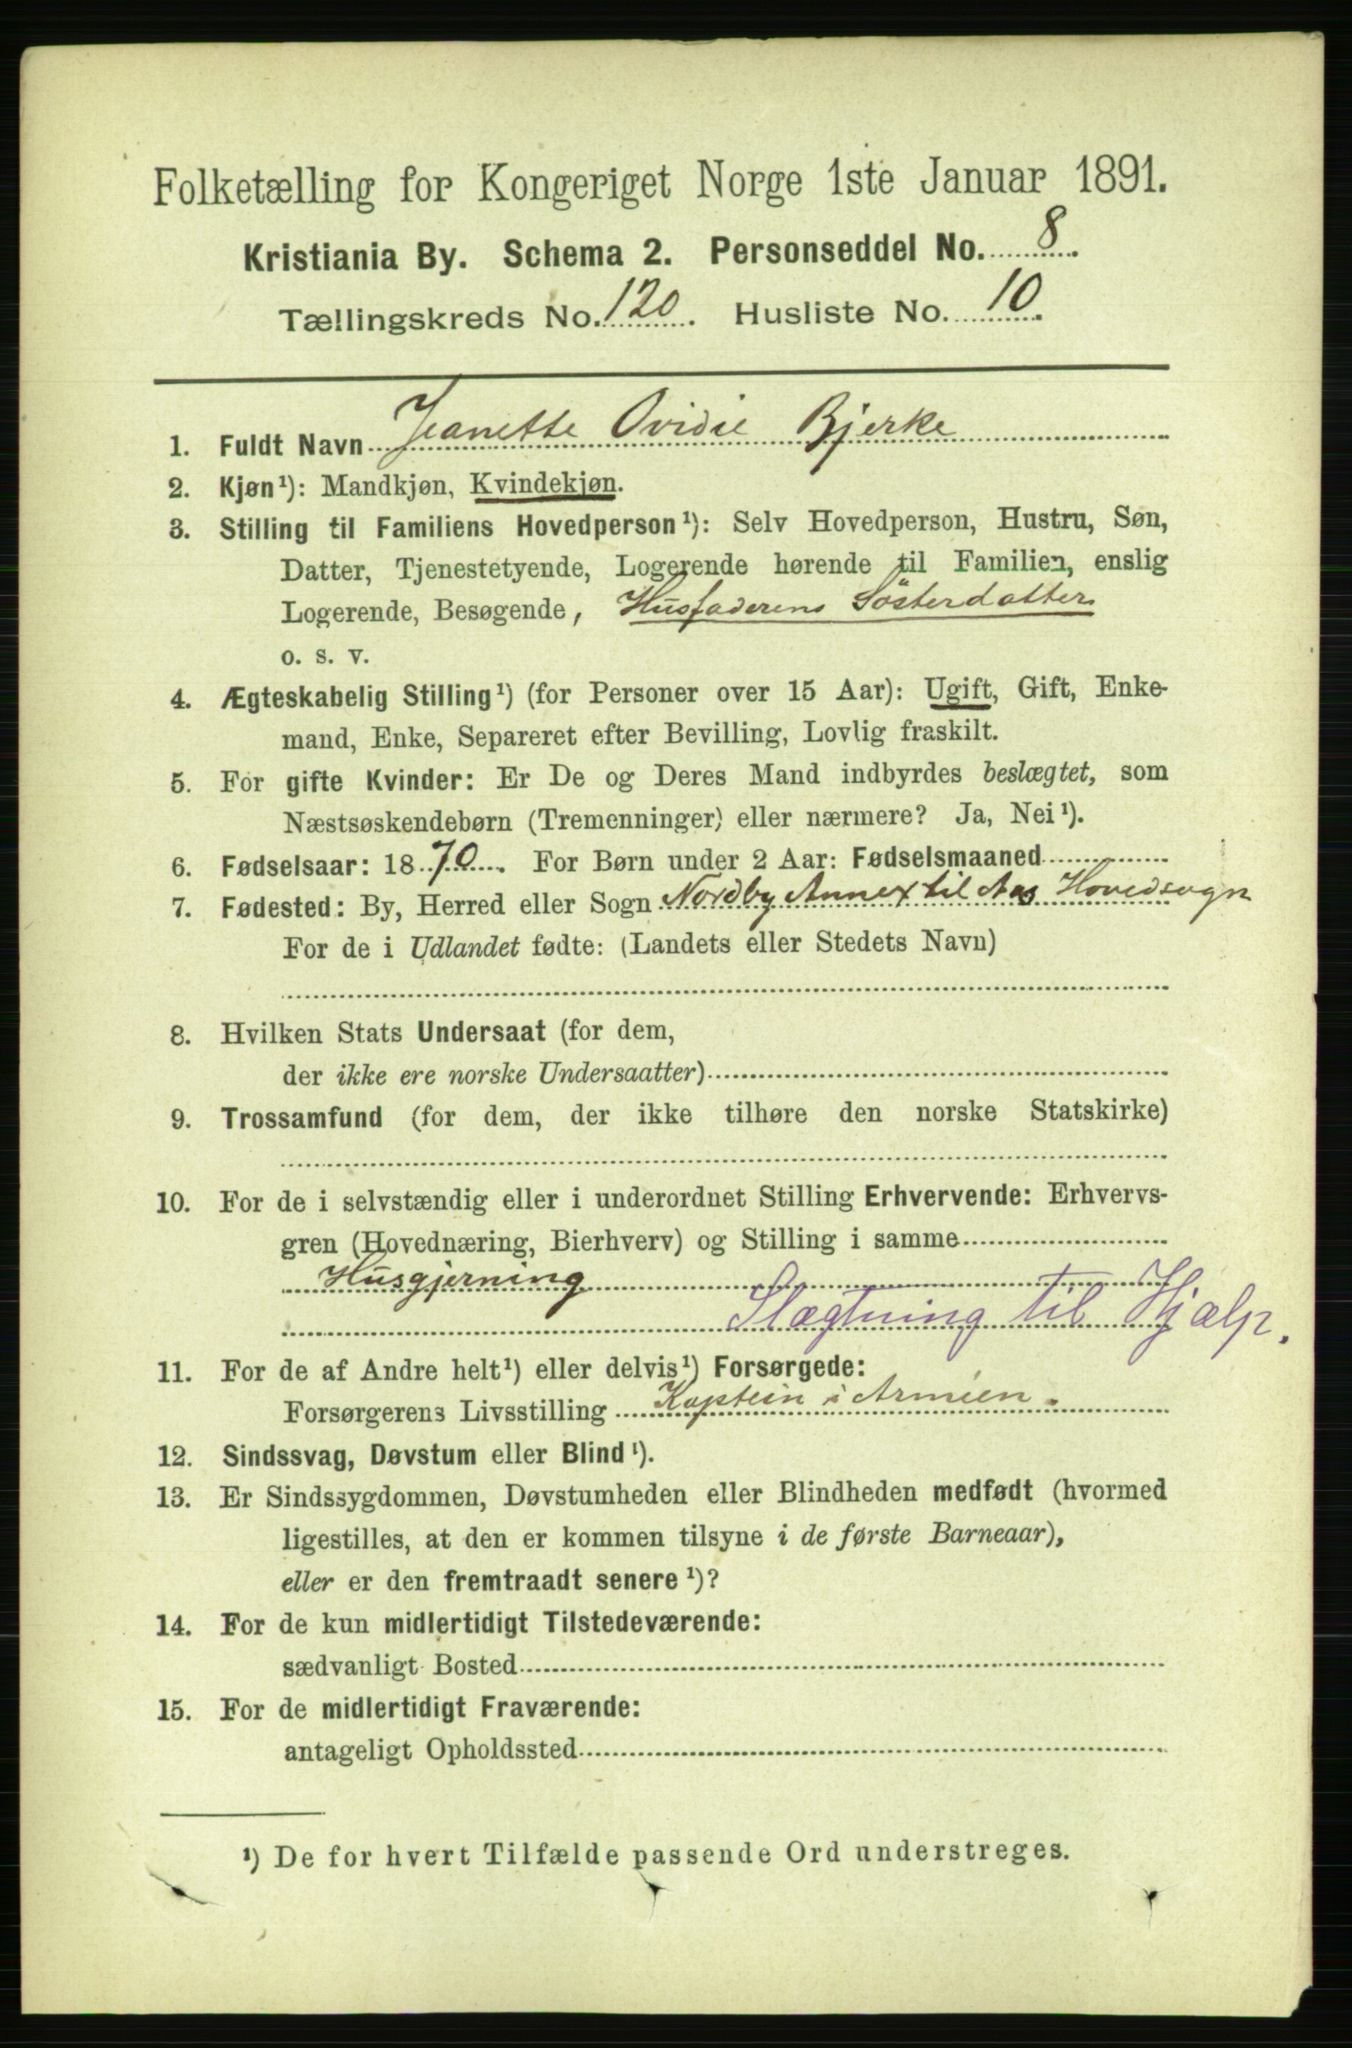 Folketælling for Kongeriget Norge 1ste Januar 1891.
Kristiania By. Schema 2. Personseddel No. 8.
Tællingskreds No. 120. Husliste No. 10.
1. Fuldt Navn Jeanette Ovidie Bjerke
2. Kjøn¹): Mandkjøn, Kvindekjøn.
3. Stilling til Familiens Hovedperson¹): Selv Hovedperson, Hustru, Søn,
Datter, Tjenestetyende, Logerende hørende til Familien, enslig
Logerende, Besøgende, Husfaderens Søsterdatter
o. s. v.
4. Ægteskabelig Stilling¹) (for Personer over 15 Aar): Ugift, Gift, Enke-
mand, Enke, Separeret efter Bevilling, Lovlig fraskilt.
5. For gifte Kvinder: Er De og Deres Mand indbyrdes beslægtet, som
Næstsøskendebørn (Tremenninger) eller nærmere? Ja, Nei¹).
6. Fødselsaar: 1870. For Børn under 2 Aar: Fødselsmaaned
7. Fødested: By, Herred eller Sogn Nordby Annex til Aas Hovedsogn
For de i Udlandet fødte: (Landets eller Stedets Navn)
8. Hvilken Stats Undersaat (for dem,
der ikke ere norske Undersaatter)
9. Trossamfund (for dem, der ikke tilhøre den norske Statskirke)
10. For de i selvstændig eller i underordnet Stilling Erhvervende: Erhvervs-
gren (Hovednæring, Bierhverv) og Stilling i samme
Husgjerning
Slægtning til Hjælp.
11. For de af Andre helt¹) eller delvis¹) Forsørgede:
Forsørgerens Livsstilling Kaptein i Armeen.
12. Sindssvag, Døvstum eller Blind¹).
13. Er Sindssygdommen, Døvstumheden eller Blindheden medfødt (hvormed
ligestilles, at den er kommen tilsyne i de første Barneaar),
eller er den fremtraadt senere¹)?
14. For de kun midlertidigt Tilstedeværende:
sædvanligt Bosted
15. For de midlertidigt Fraværende:
antageligt Opholdssted
¹) De for hvert Tilfælde passende Ord understreges.